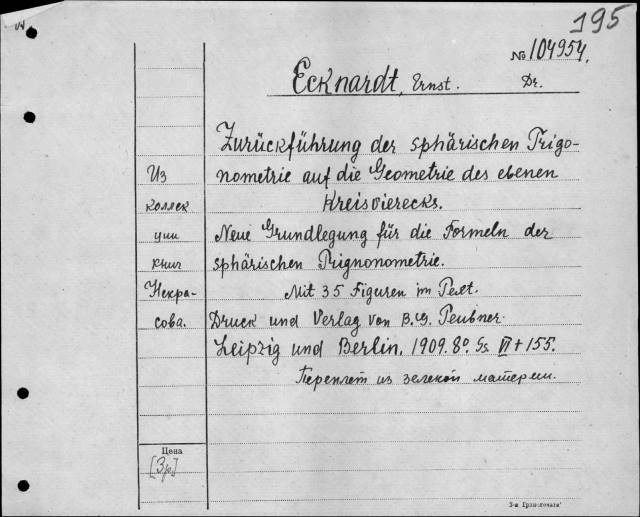 195
№ 104954.
Eckhardt, Ernst. Dr.
Zurückführung der sphärischen Trigo-
nometrie auf die Geometrie des ebenen
Kreisvierecks.
Neue Grundlegung für die Formeln der
sphärischen Trignonometrie.
Mit 35 Figuren im Text.
Druck und Verlag von B.G. Teubner.
Leipzig und Berlin, 1909. 8º. Ss VI + 155.
Переплет из зеленой материи.
Из
коллек
ции
книг
Некра-
сова.
Цена
[3р]